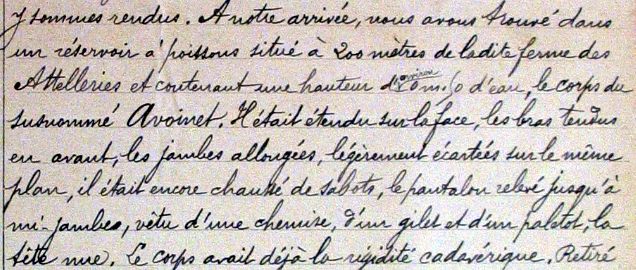 y sommes rendus. A notre arrivée, nous avons trouvé dans
un réservoir à poissons situé à 200 mètres de ladite ferme des
Attelleries et contenant une hauteur d'environ 0m.50 d'eau, le corps du
susnommé Avoinet. Il était étendu sur la face, les bras tendus
en avant, les jambes allongées, légèrement écartées sur le même
plan, il était encore chaussé de sabots, le pantalon relevé jusqu'à
mi-jambes, vêtu d'une chemise, d'un gilet et d'un paletot, la
tête nue. Le corps avait déjà la rigidité cadavérique. Retiré